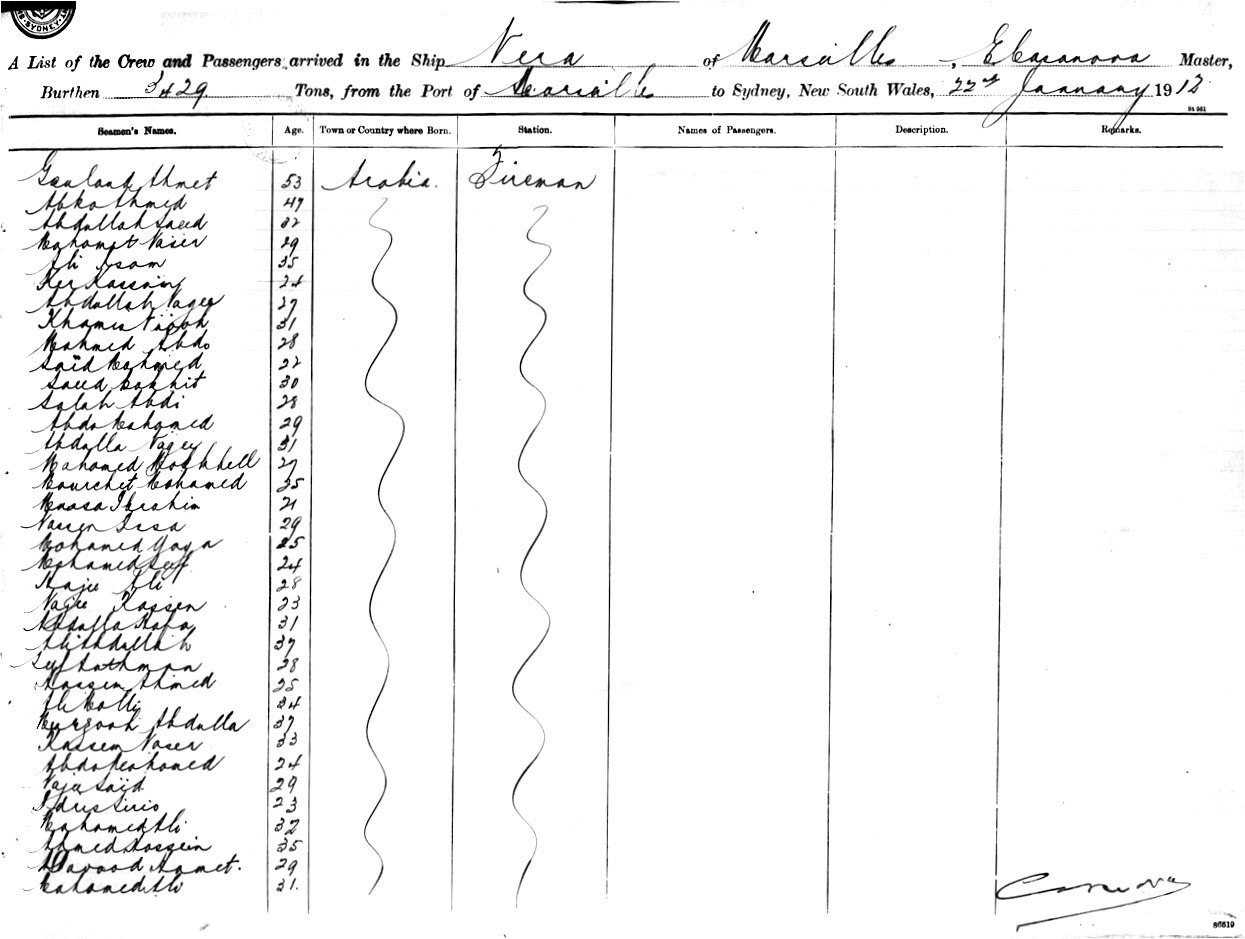 SYDNEY
A List of the Crew and Passengers arrived in the Ship Nera of Marseilles, E Casanova Master,
Burthen 3429 Tons, from the Port of Marseilles to Sydney, New South Wales, 22nd January 1912
St 961
Seamen's Names. Age. Town or Country where Born. Station. Names of Passengers. Description. Remarks.
Ahmet 53 Arabia. Fireman
Abko Ahmed 47
Abdullah Saeed 32
Mahomet Naser 29
Ali 35
Ker Kassaim 24
Abdullah Nagee 27
Khamis 31
Mahmed Abdo 28
Saïd Mahmed 22
Saeed Bakhit 30
Salah Abdi 28
Abdo Mahomed 29
Abdalla Nagey 31
Mahomed 27
Mourchet Mohamed 25
Moosa Ibrahim 21
Nasser Issa 29
Mohamed Yaya 25
Mohamed Seif 24
Hajee Ali 28
Najee Kassen 23
Abdalla 31
Ali Abdallah 37
Seif Hathman 28
Hassen Ahmed 25
Ali 34
Murzook Abdulla 37
Kassem Naser 33
Abdo Mohamed 24
Naji Saïd 29
Idris 23
Mahamed Ali 32
Ahmed Hossein 35
Dawood Hamet. 29
Mahamed Ali 31.
Casanova
86519